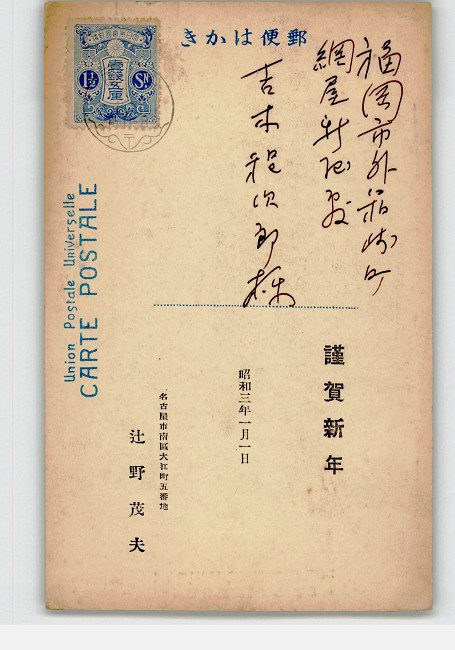 郵便はかき
大日本帝國郵便
壹錢五厘
1½
SN
福岡市外箱崎町
網屋新地
吉木程次郎様
Union Postale Universelle
CARTE POSTALE
謹賀新年
昭和三年一月一日
名古屋市南區大江町五番地
辻野茂夫